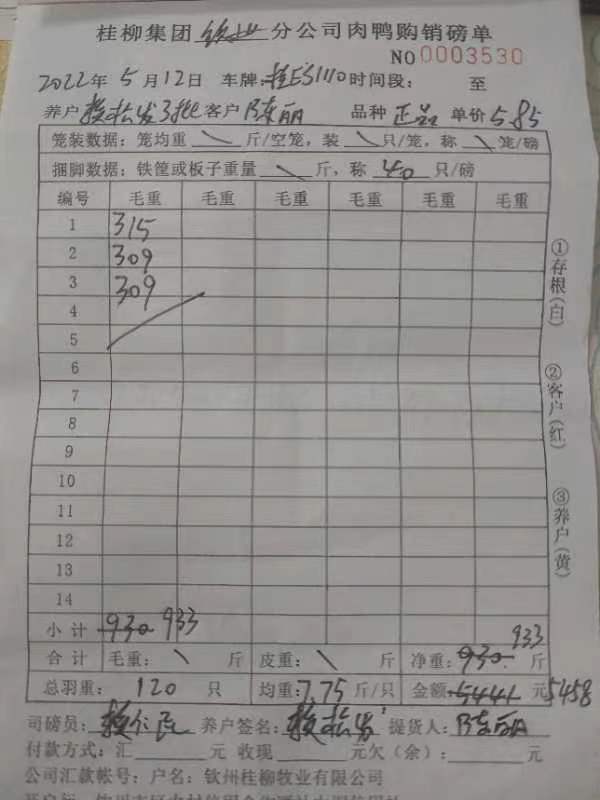 桂柳集团 钦业 分公司肉鸭购销磅单
NO 0003530
2022年5月12日 车牌: 桂E51110 时间段: 至
养户 赖松发3批 客户 陈丽 品种 正品 单价 5.85
笼装数据: 笼均重 \ 斤/空笼, 装 \ 只/笼, 称 \ 笼/磅
捆脚数据: 铁筐或板子重量 \ 斤, 称 40 只/磅
编号 毛重 毛重 毛重 毛重 毛重 毛重
1 315
2 309
3 309
4
5
6
7
8
9
10
11
12
13
14
小计 930 933
933
合计 毛重: \ 斤 皮重: \ 斤 净重: 930 斤
总羽重: 120 只 均重: 7.75 斤/只 金额: 5441 元 5458
司磅员: 赖仁民 养户签名: 赖松发 提货人: 陈丽
付款方式: 汇 元 收现 元欠(余): 元
公司汇款帐号: 户名: 钦州桂柳牧业有限公司
①存根(白)
②客户(红)
③养户(黄)